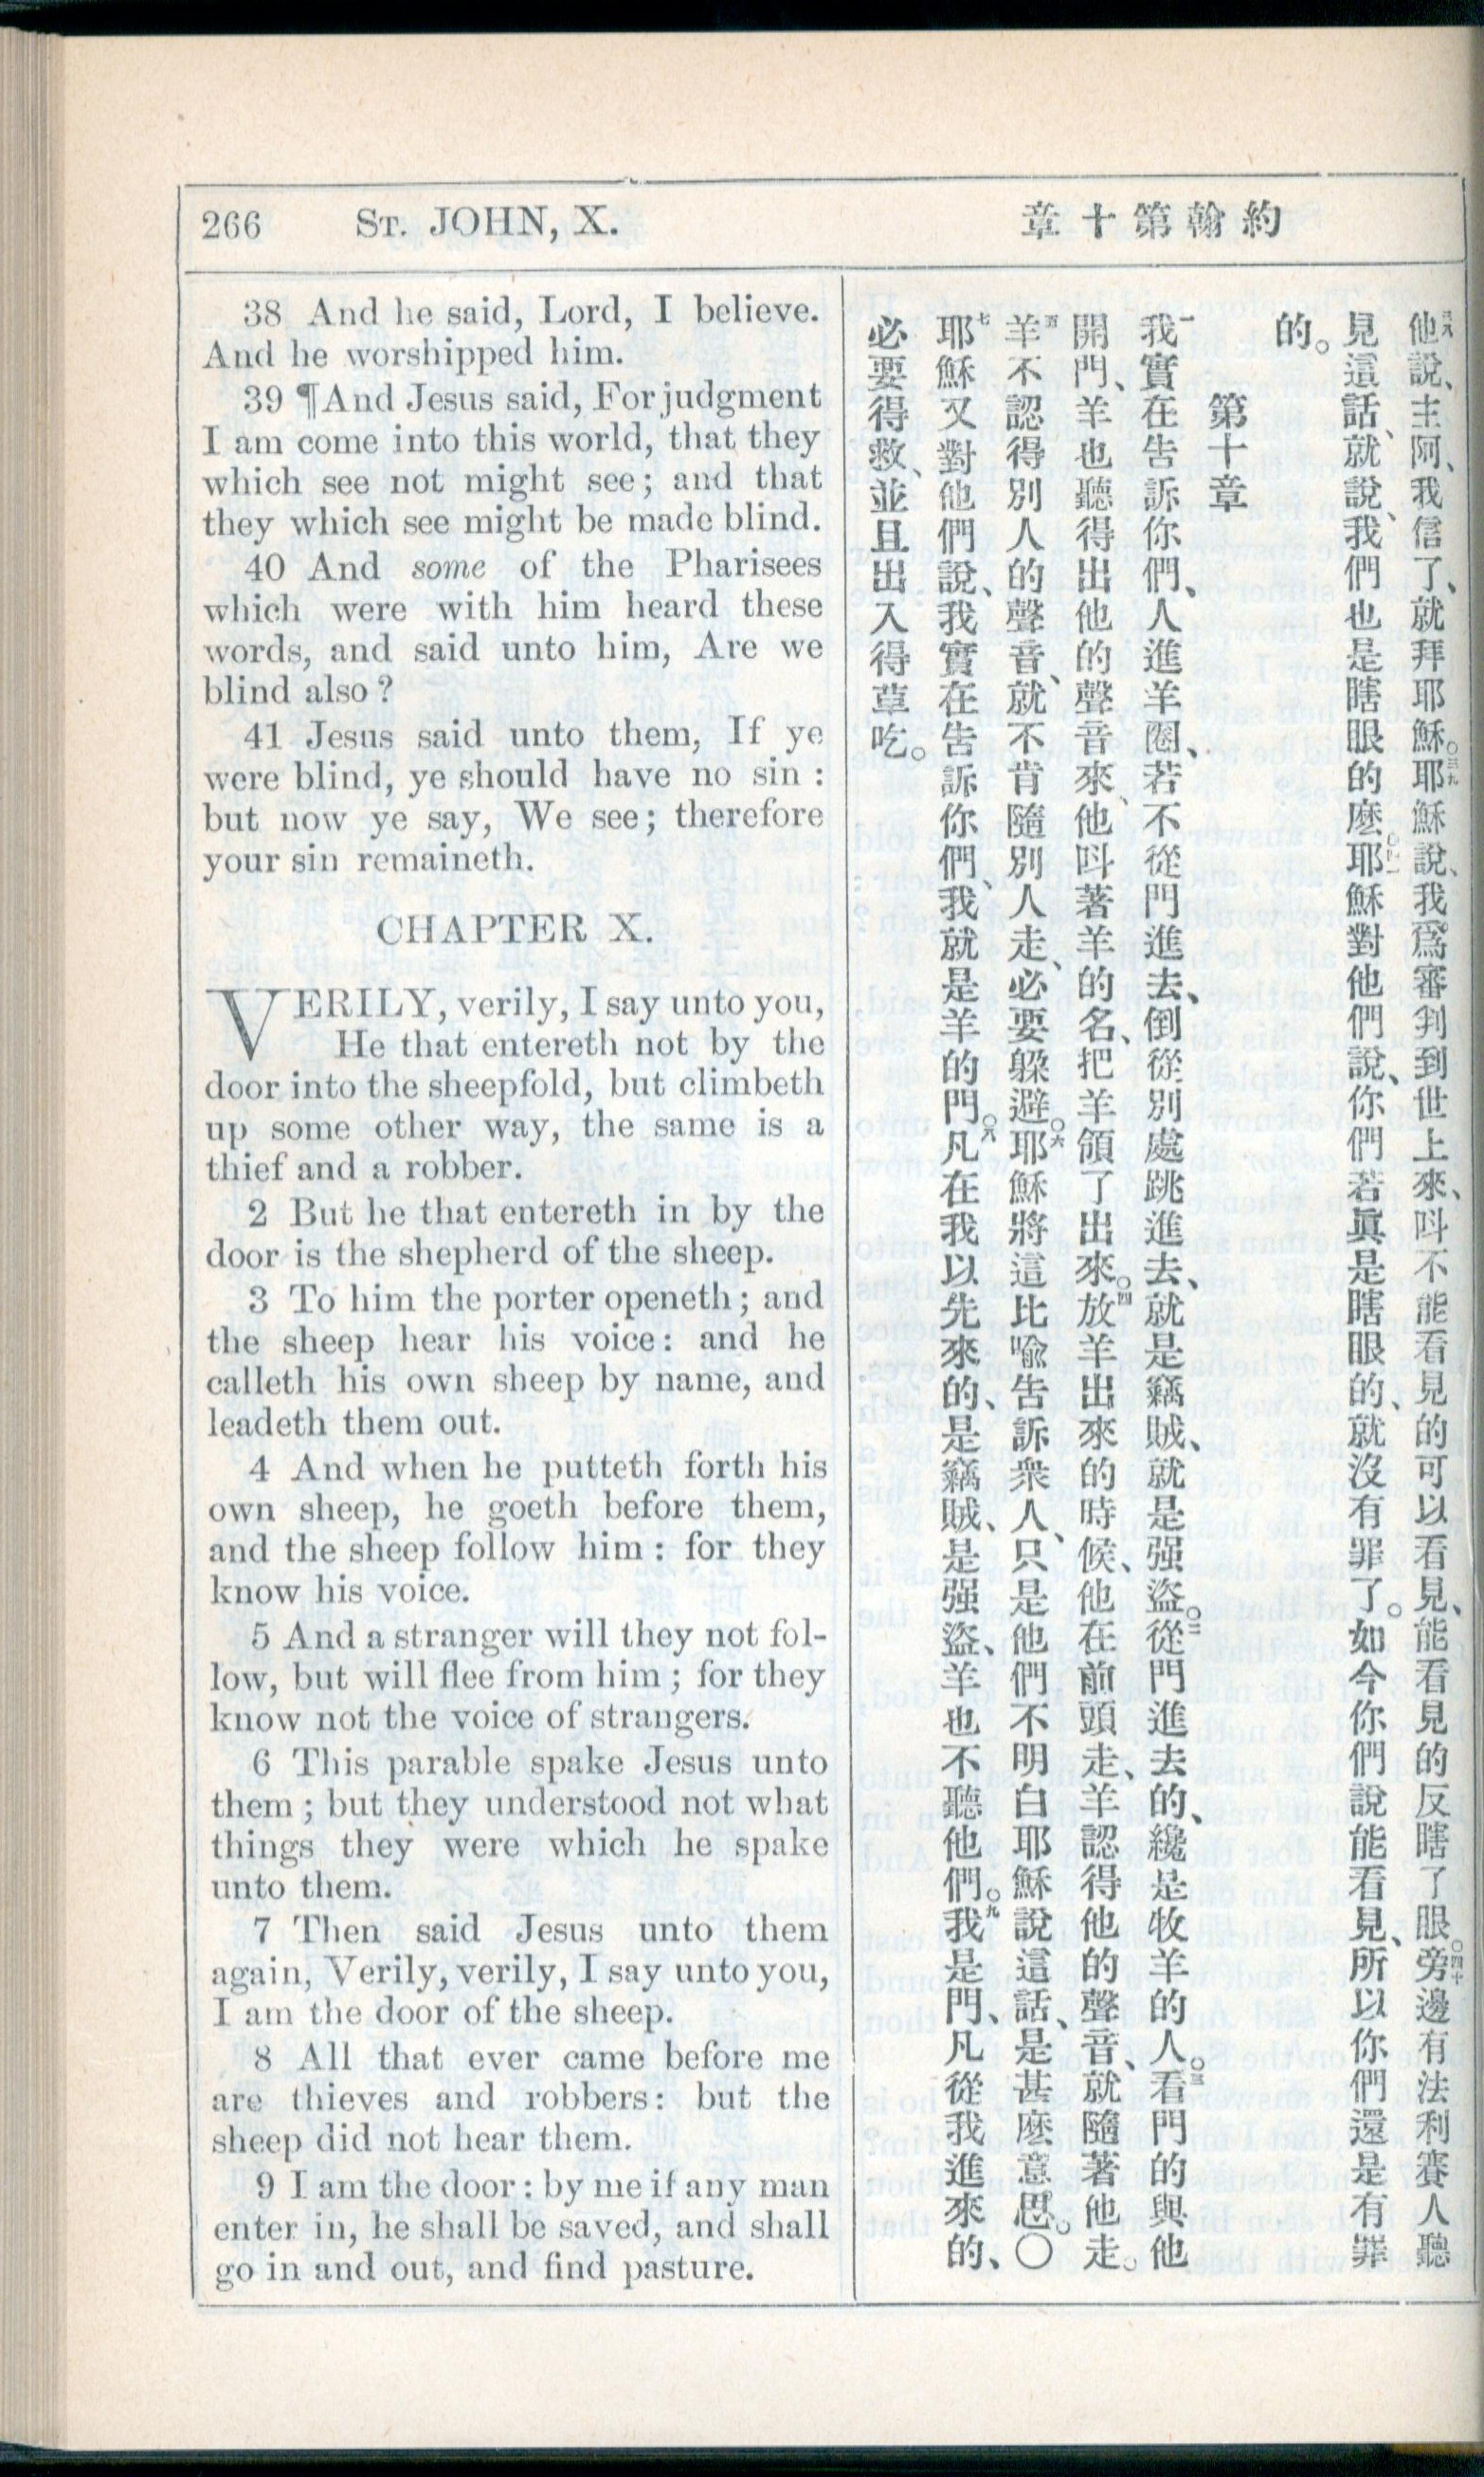 266 ST. JOHN, X.
章十第翰約
38 And he said, Lord, I believe.
And he worshipped him.
39 ¶And Jesus said, For judgment
I am come into this world, that they
which see not might see; and that
they which see might be made blind.
40 And some of the Pharisees
which were with him heard these
words, and said unto him, Are we
blind also?
41 Jesus said unto them, If ye
were blind, ye should have no sin:
but now ye say, We see; therefore
your sin remaineth.
CHAPTER X.
VERILY, verily, I say unto you,
He that entereth not by the
door into the sheepfold, but climbeth
up some other way, the same is a
thief and a robber.
2 But he that entereth in by the
door is the shepherd of the sheep.
3 To him the porter openeth; and
the sheep hear his voice: and he
calleth his own sheep by name, and
leadeth them out.
4 And when he putteth forth his
own sheep, he goeth before them,
and the sheep follow him: for they
know his voice.
5 And a stranger will they not fol-
low, but will flee from him; for they
know not the voice of strangers.
6 This parable spake Jesus unto
them; but they understood not what
things they were which he spake
unto them.
7 Then said Jesus unto them
again, Verily, verily, I say unto you,
I am the door of the sheep.
8 All that ever came before me
are thieves and robbers: but the
sheep did not hear them.
9 I am the door: by me if any man
enter in, he shall be saved, and shall
go in and out, and find pasture.
三八他說、主阿、我信了、就拜耶穌。三九耶穌說、我爲審判到世上來、呌不能看見的可以看見、能看見的反瞎了眼。四十旁邊有法利賽人聽
見這話、就說、我們也是瞎眼的麽。四一耶穌對他們說、你們若眞是瞎眼的、就沒有罪了。如今你們說能看見、所以你們還是有罪
的。
第十章
一我實在告訴你們、人進羊圈、若不從門進去、倒從別處跳進去、就是竊賊、就是强盜。二從門進去的、纔是牧羊的人。三看門的與他
開門、羊也聽得出他的聲音來、他呌著羊的名、把羊領了出來。四放羊出來的時候、他在前頭走、羊認得他的聲音、就隨著他走。
五羊不認得別人的聲音、就不肯隨別人走、必要躲避。六耶穌將這比喩告訴衆人、只是他們不明白耶穌說這話、是甚麽意思。〇
七耶穌又對他們說、我實在告訴你們、我就是羊的門。八凡在我以先來的、是竊賊、是强盜、羊也不聽他們。九我是門、凡從我進來的、
必要得救、並且出入得草吃。